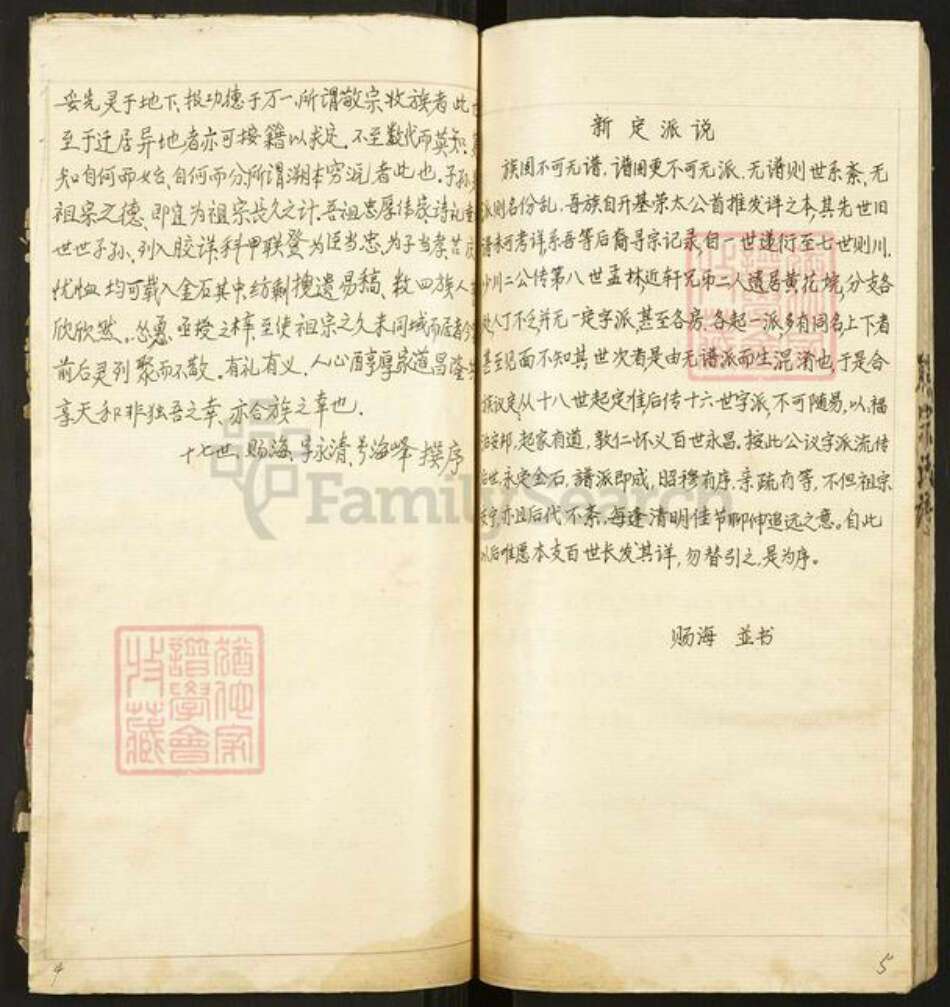 妥先灵于地下、报功德于万一、所谓敬宗收族者此
至于迁居异地者亦可按籍以求定、不至数代而莫知、
知自何而始、自何而分、所谓溯本穷源者此也、子孙
祖宗之德、即宜为祖宗长久之计、吾祖忠厚传家诗礼
世世子孙、列入胶详、科甲联登为臣当忠、为子当孝苦
忧恤、均可载入金石其中、纺剩搜遗易稿、数四族人
欣欣然、怂恿、亟授之梓、至使祖宗之久未同域而居者
前后灵列聚而不散。有礼有义、人心酒享厚家道昌隆
享天和非独吾之幸、亦合族之幸也、
十七世、赐海、字永清、号海峰 撰序
新定派说
族固不可无谱，谱固更不可无派、无谱则世系紊、无
派则名份乱，吾族自开基荣太公首推发详之本，其先世旧
谱未可考详，系吾等后裔寻宗记录自一世遂衍至七世则川、
少川二公传第八世孟林，近轩兄弟二人遗居黄花垸，分支各
处人丁不乏并无一定字派，甚至各房、各起一派，多有同名，上下者
甚至见面不知其世次者是由无谱派而生混淆也，于是合
族议定，从十八世起定准后传十六世字派，不可随易，以福
治安邦，起家有道，敦仁怀义百世永昌、按此公议字派流传
后世、永定金石，譜派即成，昭穆有序、亲疏有等，不但祖宗
安宁，亦且后代不紊，每逢清明佳节聊伸追远之意。自此
以后唯愿本支百世长发其详，勿替引之，是为序。
赐海 並书
譜學會
收藏
FamilySearch
4
5